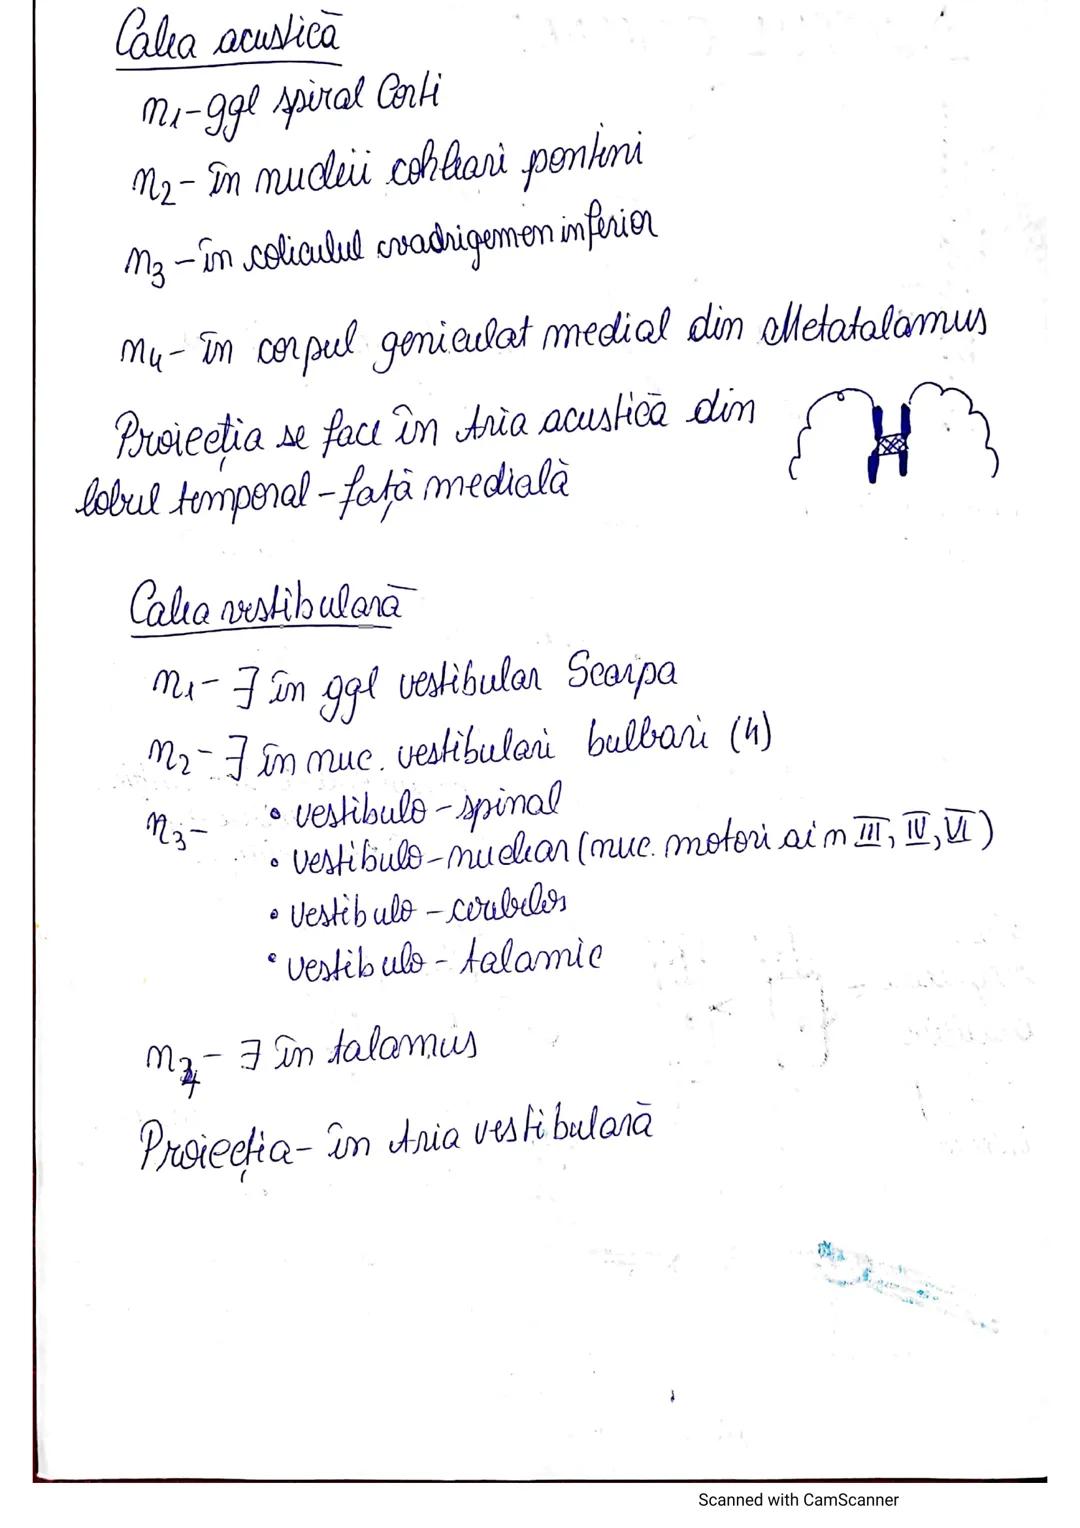 Calea acustică
n1-ggl spiral Corti
n2- în nucleii cohleari pontini
n3 - în coliculul cvadrigemen inferior
n4- în corpul geniculat medial din Metatalamus
Proiecția se face în Aria acustică din
lobul temporal - față medială
Calea vestibulară
n1- ∃ în ggl vestibular Scarpa
n2- ∃ în nuc. vestibulari bulbari (4)
n3- • vestibulo-spinal
• vestibulo-nuclear (nuc. motori ai n III, IV, VI)
• vestibulo - cerebelos
• vestibulo - talamic
n4 - ∃ în talamus
Proiecția- în Aria vestibulară
Scanned with CamScanner